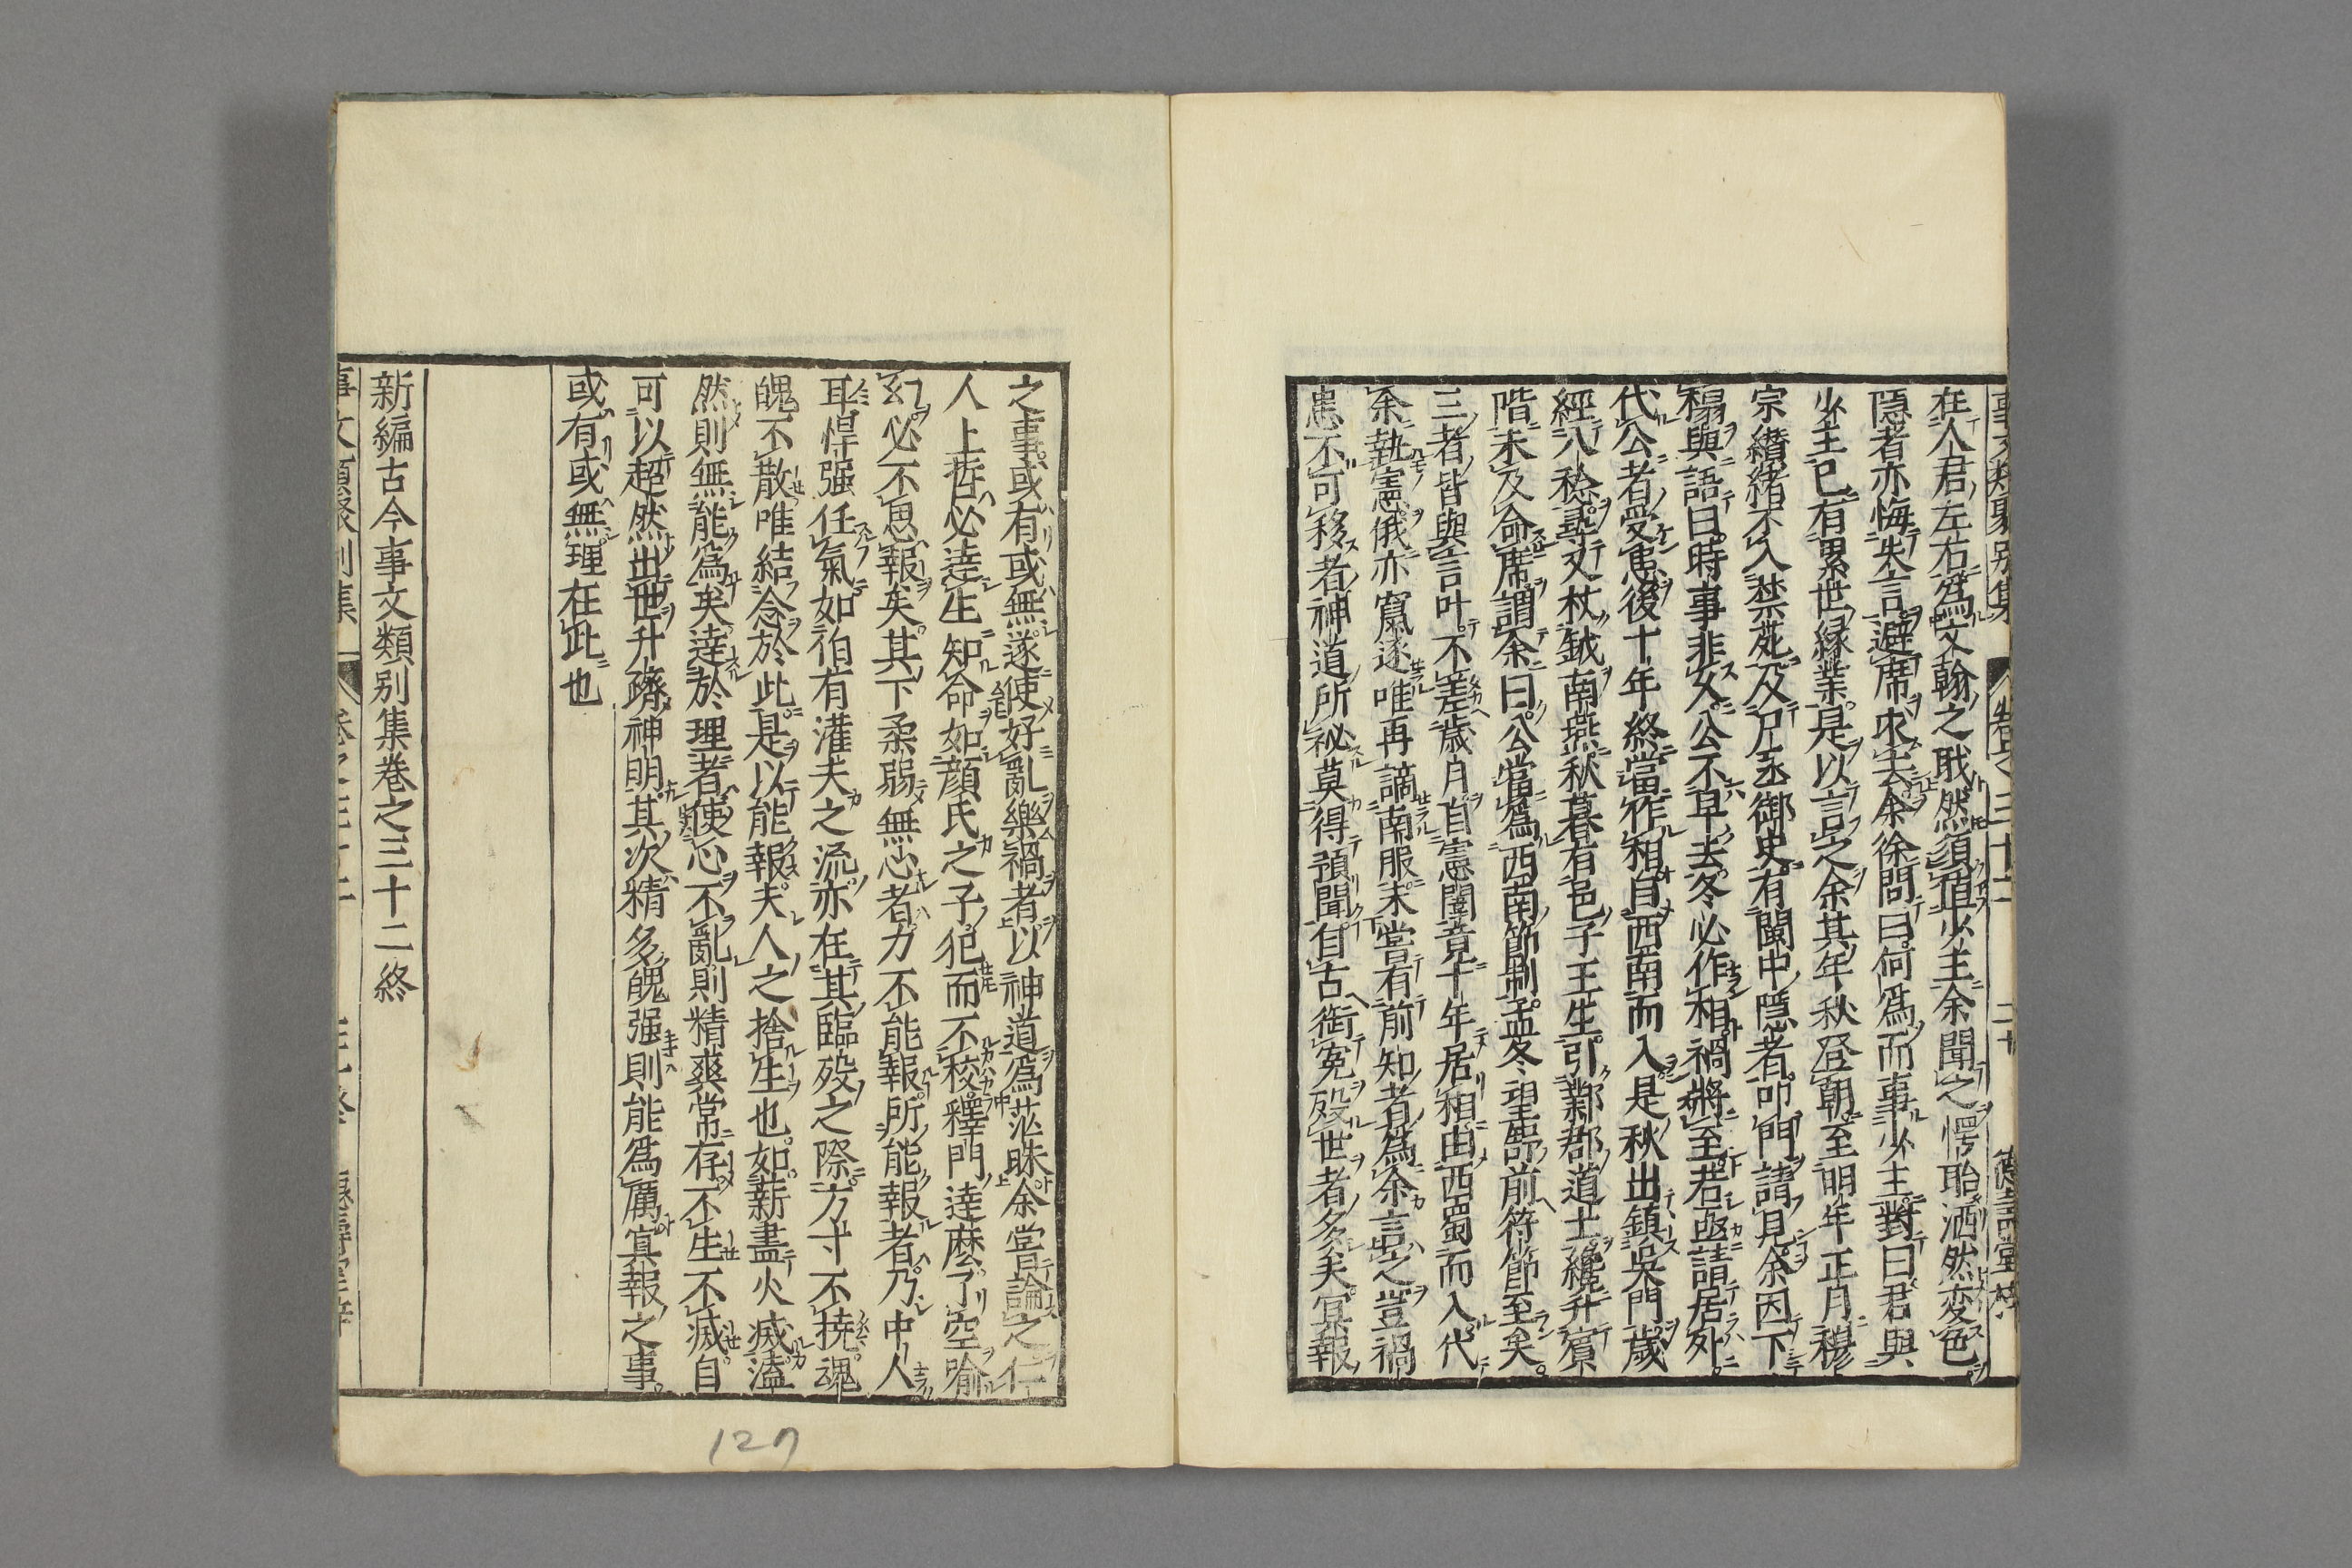 在人君左右爲文翰之職然須値少主余聞之愕眙洒然変色
隱者亦悔失言避席求去余徐問曰何爲而事少主對曰君與
少主已有累世縁業是以言之余其年秋登朝至明年正月穆
宗纉緒不入禁苑及爲中丞御史有閩中隱者叩門請見余因下
榻與語曰時事非久公不早去冬必作相禍將至若亟請居外
代公者受患後十年終當作相自西南而入是秋出鎮吳門歳
經八稔尋又杖鉞南燕秋暮有邑子王生引鄴郡道士纔升賓
階未及命席謂余曰公當爲西南節制孟冬望舒前符節至矣
三者皆與言叶不差歳月自憲闈竟十年居相由西蜀而入代
余執憲俄亦竄逐唯再謫南服未嘗有前知者爲余言之豈禍
患不可移者神道所祕莫得預聞自古衘寃殁世者多矣冥報
之事或有或無遂使好亂樂禍者以神道爲茫昧余嘗論之仁
人上哲必達生知命如顔氏之子犯而不校釋門達麽了空喩
幻必不思報矣其下柔弱無心者力不能報所能報者乃中人
耳悍强任氣如伯有灌夫之流亦在其臨殁之際方寸不撓魂
魄不散唯結念於此是以能報夫人之捨生也如薪盡火滅溘
然則無能爲矣達於理者使心不亂則精爽常存不生不滅自
可以超然出世升躋神明其次精多魄强則能爲厲冥報之事
或有或無理在此也
新編古今事文類别集巻之三十二終
127